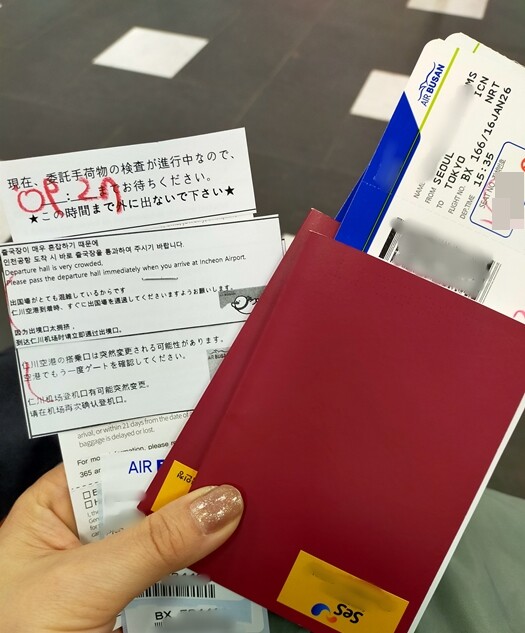 現在、委託手荷物の検査が進行中なので、
09:27までお待ちください。
★この時間まで外に出ないで下さい★
출국장이 매우 혼잡하기 때문에
인천공항 도착 시 바로 출국장을 통과하여 주시기 바랍니다.
Departure hall is very crowded.
Please pass the departure hall immediately when you arrive at Incheon Airport.
出国場がとても混雑しているからです
仁川空港到着時、すぐに出国場を通過してくださいますようお願いします。
因为出境口太拥挤，
到达仁川机场时请立即通过出境口。
仁川空港の搭乗口は突然変更される可能性があります。
空港でもう一度ゲートを確認してください。
仁川机场登机口有可能突然变更。
请在机场再次确认登机口。
arrival, or within 21 days from the date of
baggage is delayed or lost.
For mo
formation, please
365 ar
AIR B
BX
AIR BUSAN
MS
NAME
FROM SEOUL ICN
TO TOKYO NRT
FLIGHT NO. BX 166/16JAN26
DEP.TIME 15:35
SEAT NO.
Ses